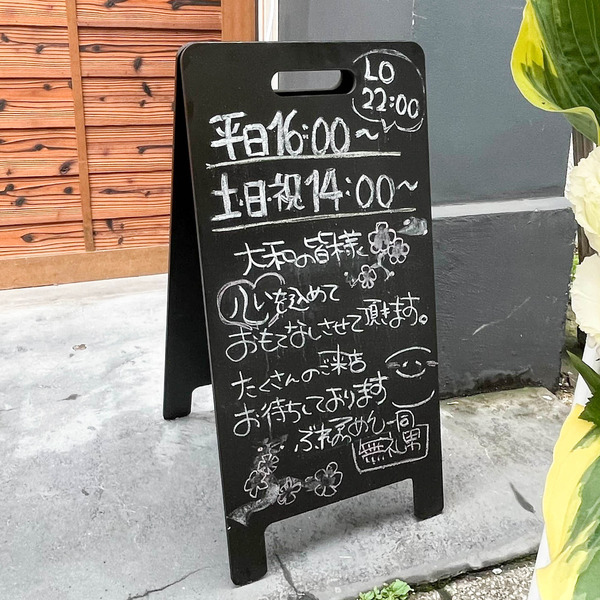 LO
22:00
平日16:00〜
土・日・祝14:00〜
大和の皆様
心を込めて
おもてなしさせて頂きます。
たくさんのご来店
お待ちしております
一同
無礼男